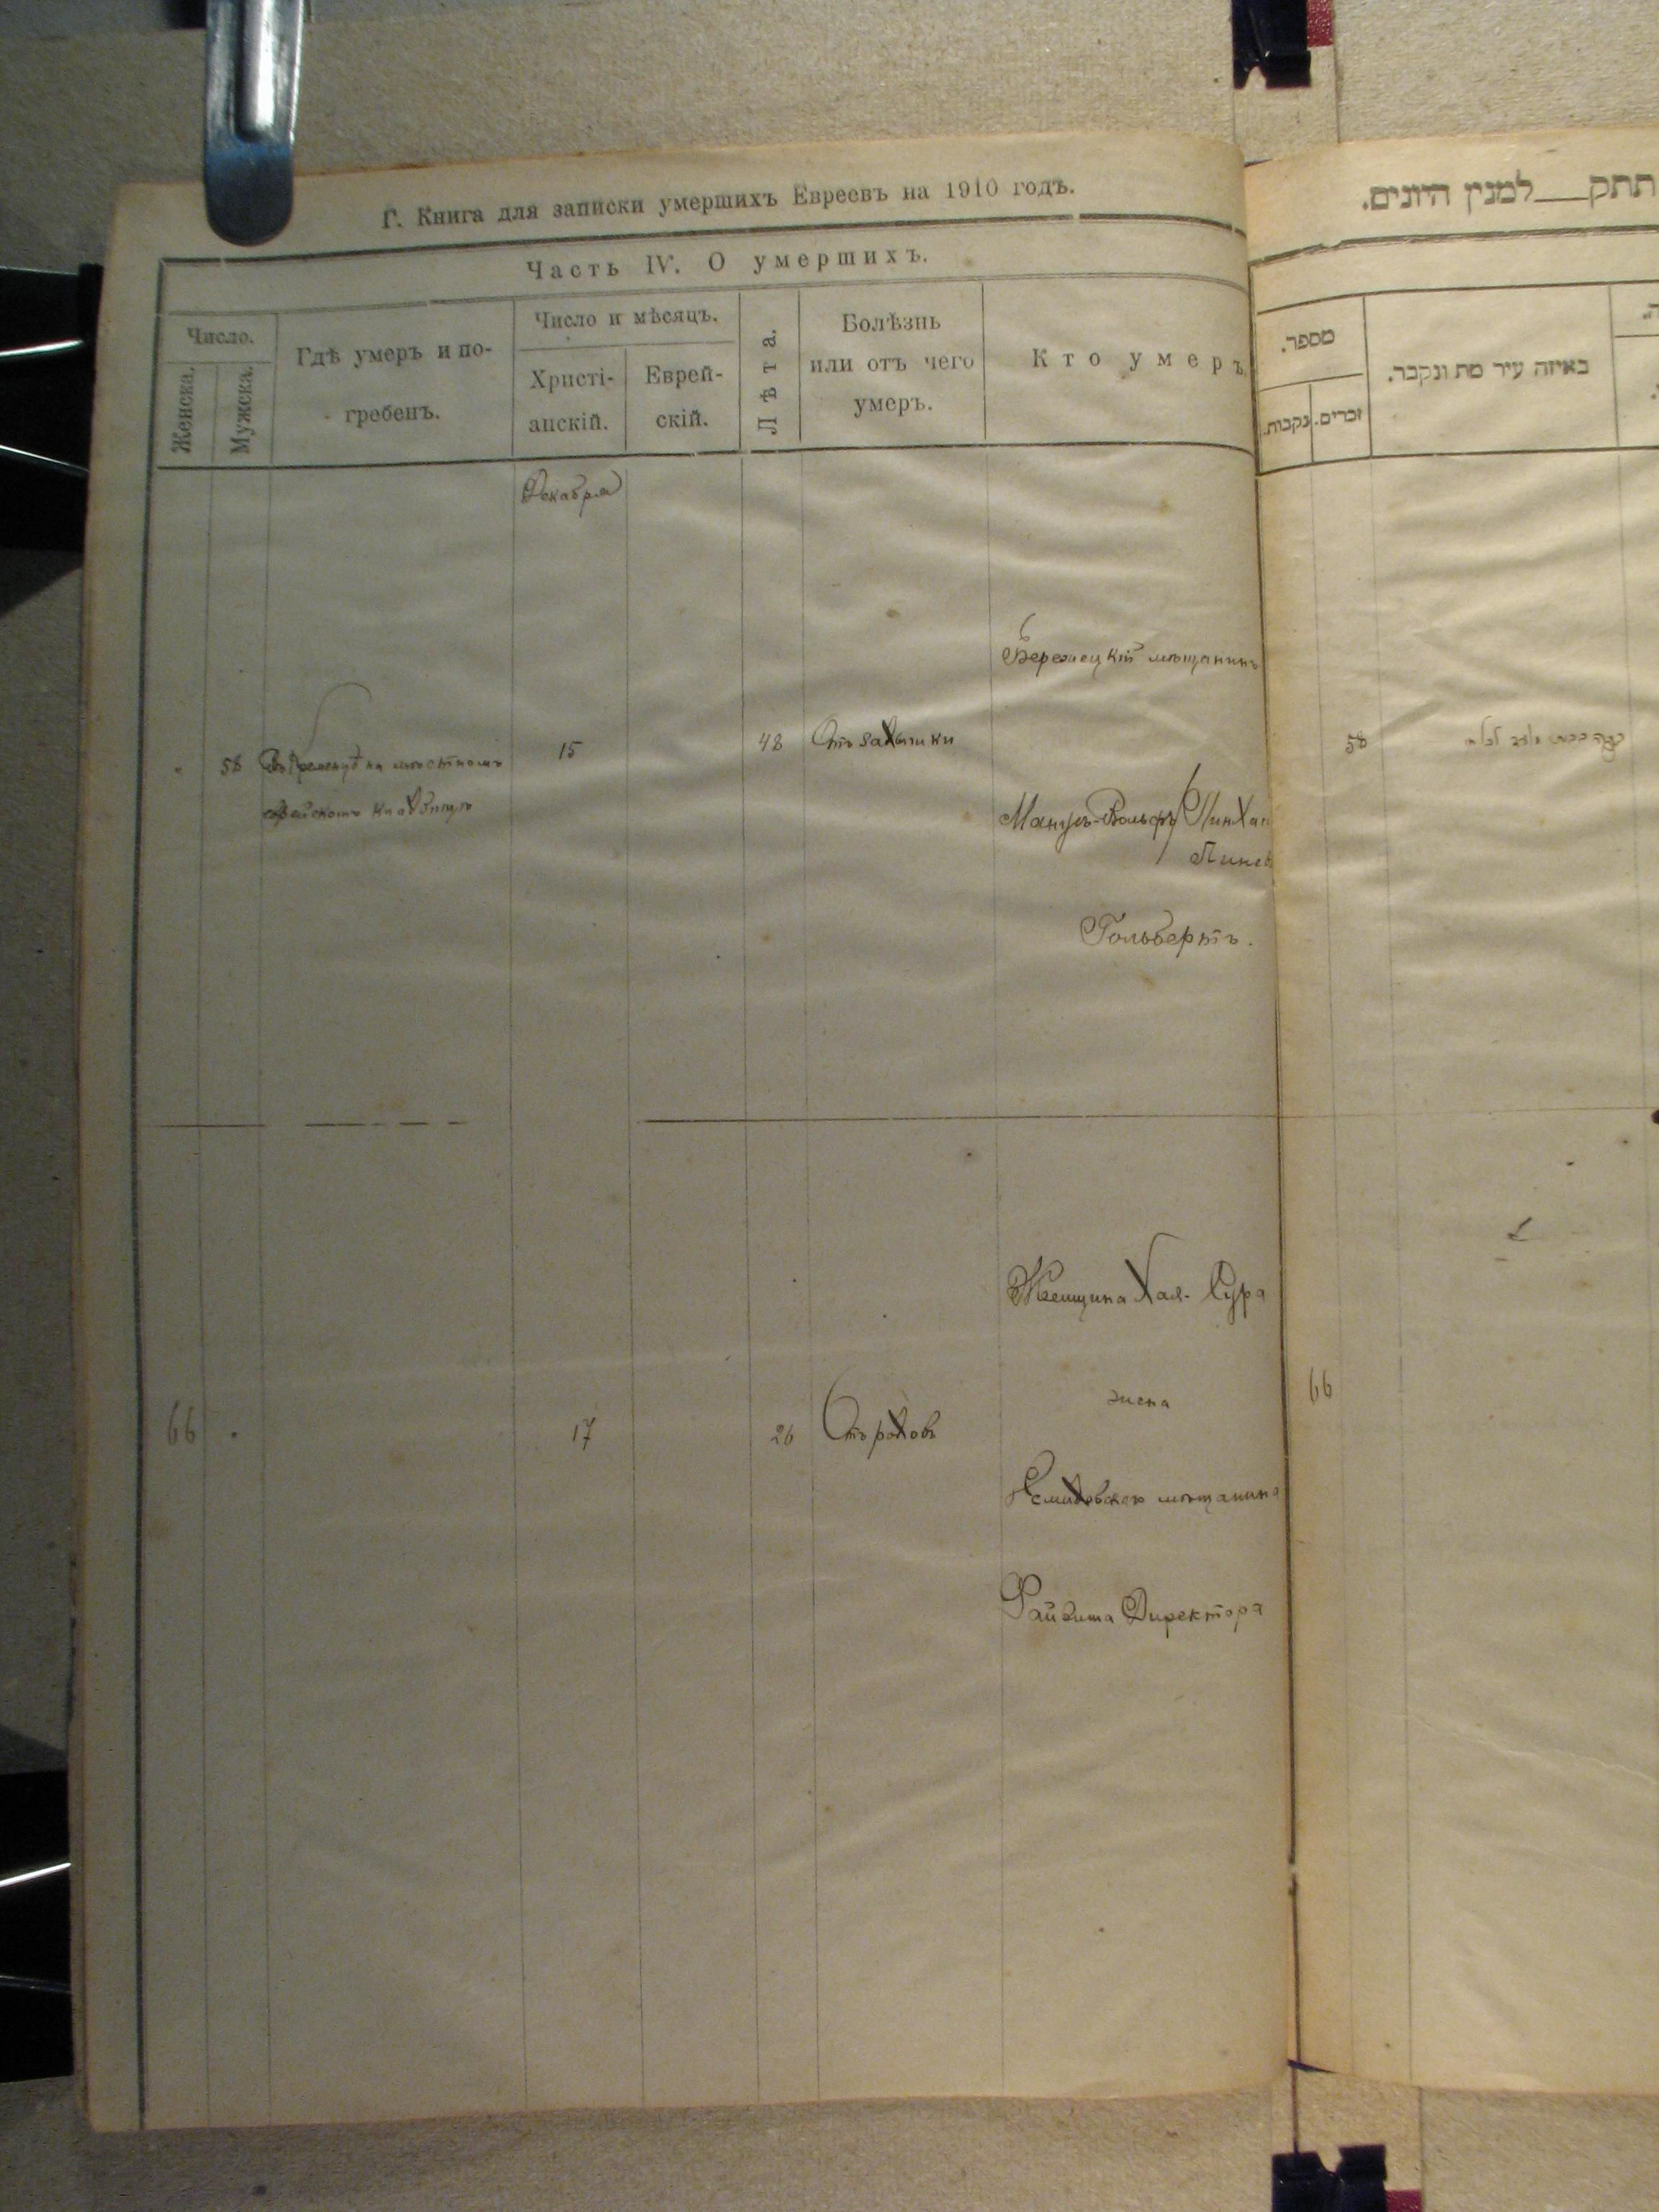 Г. Книга для записки умершихъ Евреевъ на 1910 годъ.
Часть IV. О умершихъ.
Число.
Женска.
Мужска.
Гдѣ умеръ и по-
гребенъ.
Число и мѣсяцъ.
Христі-
анскій.
Еврей-
скій.
Лѣта.
Болѣзнь
или отъ чего
умеръ.
Кто умеръ
Декабря
58
Въ Кременцѣ на мѣстномъ
еврейскомъ кладбищѣ
15
48
Отъ задышки
Бережецкій мѣщанинъ
Вольфъ
Гольбертъ.
66
17
26
Отъ родовъ
Женщина Хая-Сура
жена
мѣщанина
Файвиша Директора
תתק למנין היונים.
מספר.
נקבות.
זכרים.
באיזה עיר מת ונקבר.
58
66